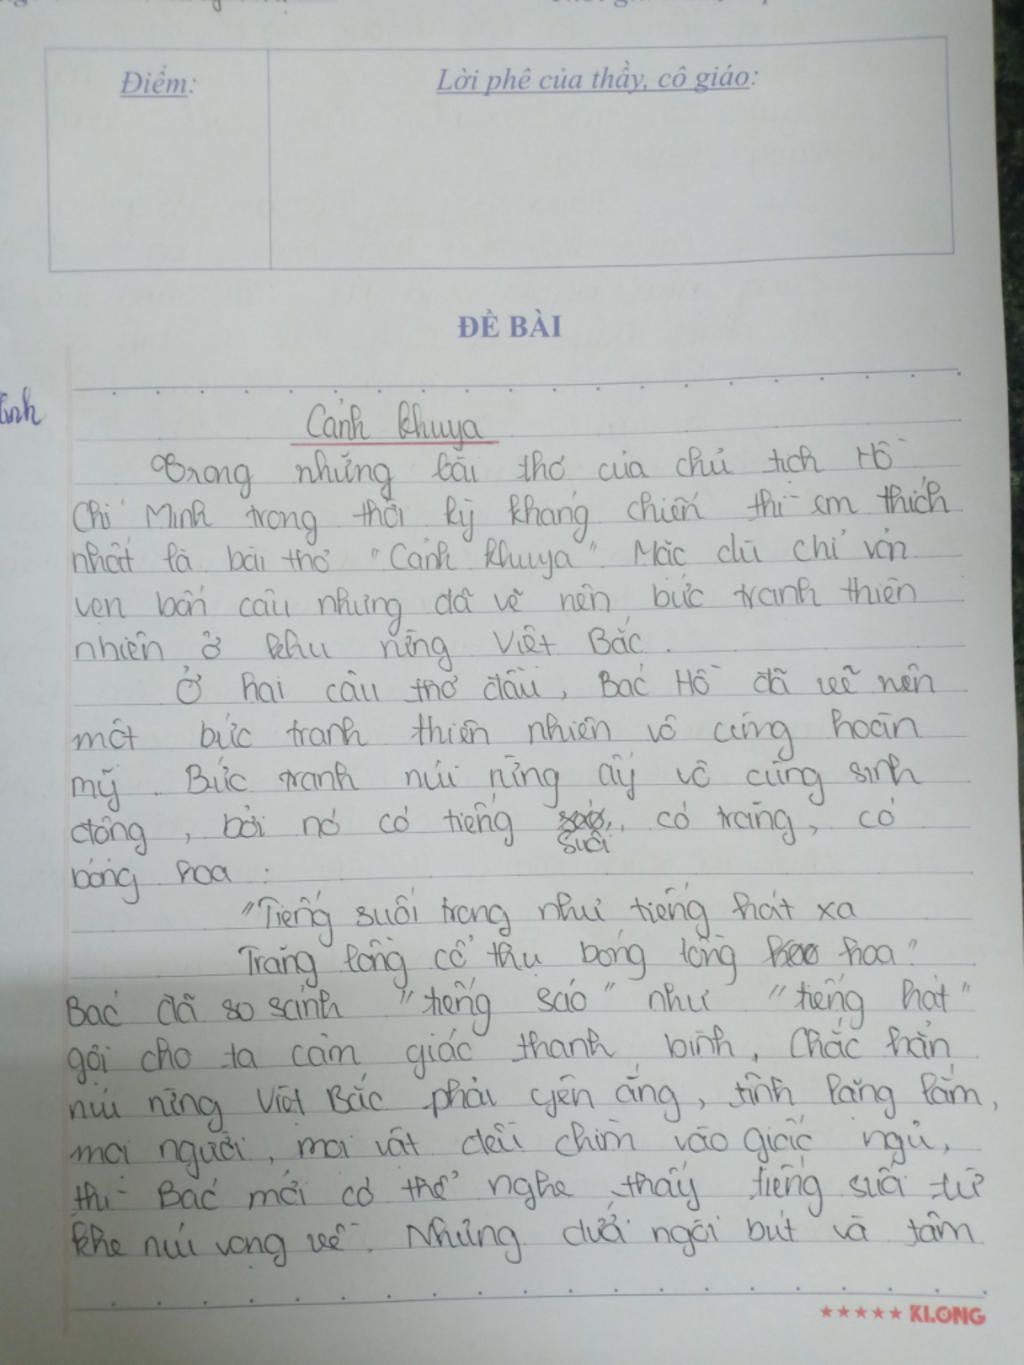 Điểm:
Lời phê của thầy, cô giáo:
ĐỀ BÀI
Cảnh khuya
Trong những bài thơ của chủ tịch Hồ
Chí Minh trong thời kỳ kháng chiến thì em thích
nhất là bài thơ "Cảnh khuya". Mặc dù chỉ vỏn
vẹn bốn câu nhưng đã vẽ nên bức tranh thiên
nhiên ở khu rừng Việt Bắc.
Ở hai câu thơ đầu, Bác Hồ đã vẽ nên
một bức tranh thiên nhiên vô cùng hoàn
mỹ. Bức tranh núi rừng ấy vô cùng sinh
động, bởi nó có tiếng suối, có trăng, có
bóng hoa:
"Tiếng suối trong như tiếng hát xa
Trăng lồng cổ thụ bóng lồng hoa"
Bác đã so sánh "tiếng sáo" như "tiếng hát"
gợi cho ta cảm giác thanh bình. Chắc hẳn
núi rừng Việt Bắc phải yên ắng, tĩnh lặng lắm,
mọi người, mọi vật đều chìm vào giấc ngủ,
thì Bác mới có thể nghe thấy tiếng suối từ
khe núi vọng về. Nhưng dưới ngòi bút và tâm
★★★★★ KLONG